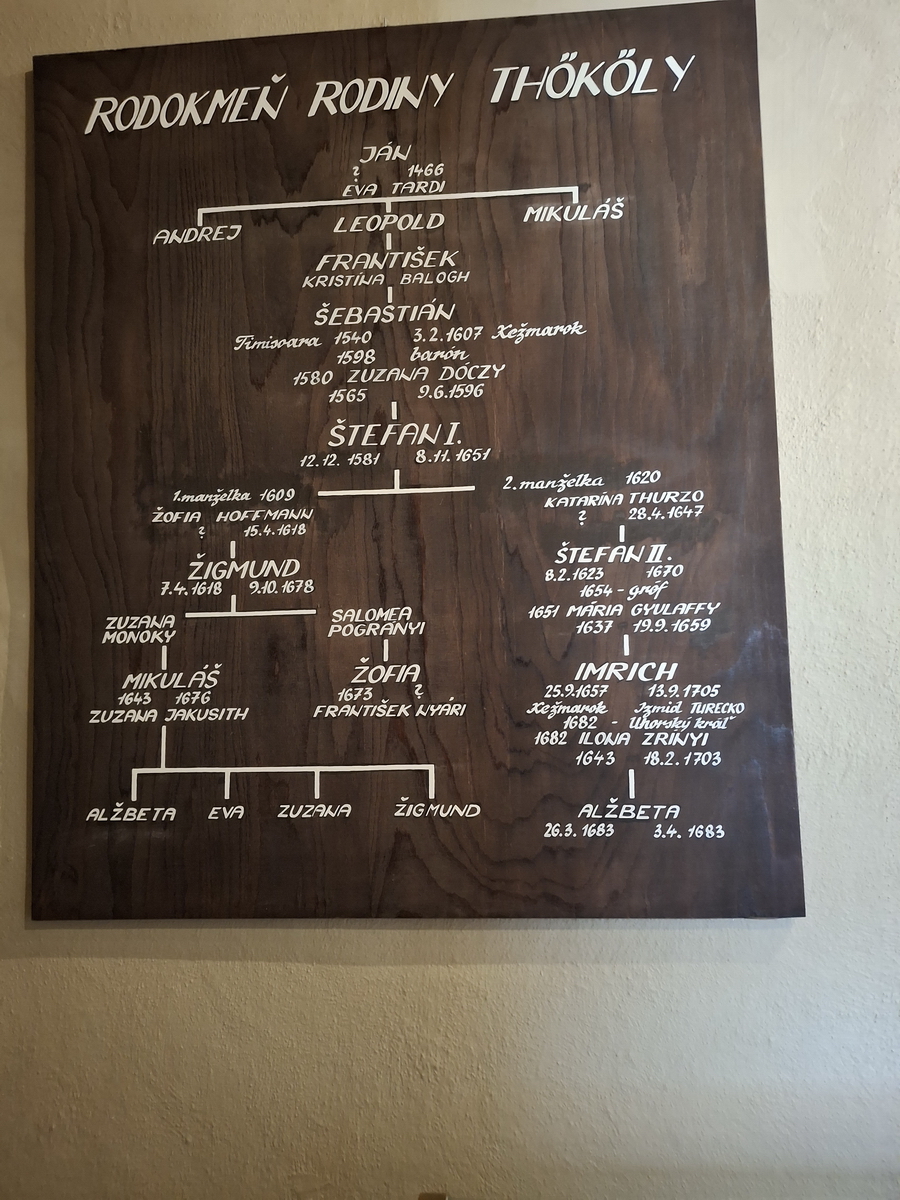 RODOKMEŇ RODINY THŐKŐLY
JÁN
? 1466
EVA TARDI
ANDREJ LEOPOLD MIKULÁŠ
FRANTIŠEK
KRISTÍNA BALOGH
ŠEBASTIÁN
Timisoara 1540 3.2.1607 Kežmarok
1598 barón
1580 ZUZANA DÓCZY
1565 9.6.1596
ŠTEFAN I.
12.12. 1581 8.11.1651
1.manželka 1609
ŽOFIA HOFFMANN
? 15.4.1618
ŽIGMUND
7.4.1618 9.10.1678
ZUZANA MONOKY
SALOMEA POGRÁNYI
MIKULÁŠ
1643 1676
ZUZANA JAKUSITH
ŽOFIA
1673 ?
FRANTIŠEK NYÁRI
ALŽBETA EVA ZUZANA ŽIGMUND
2.manželka 1620
KATARÍNA THURZO
? 28.4.1647
ŠTEFAN II.
8.2.1623 1670
1654 - gróf
1651 MÁRIA GYULAFFY
1637 19.9.1659
IMRICH
25.9.1657 13.9.1705
Kežmarok Izmid TURECKO
1682 - Uhorský kráľ
1682 ILONA ZRÍNYI
1643 18.2.1703
ALŽBETA
26.3.1683 3.4.1683